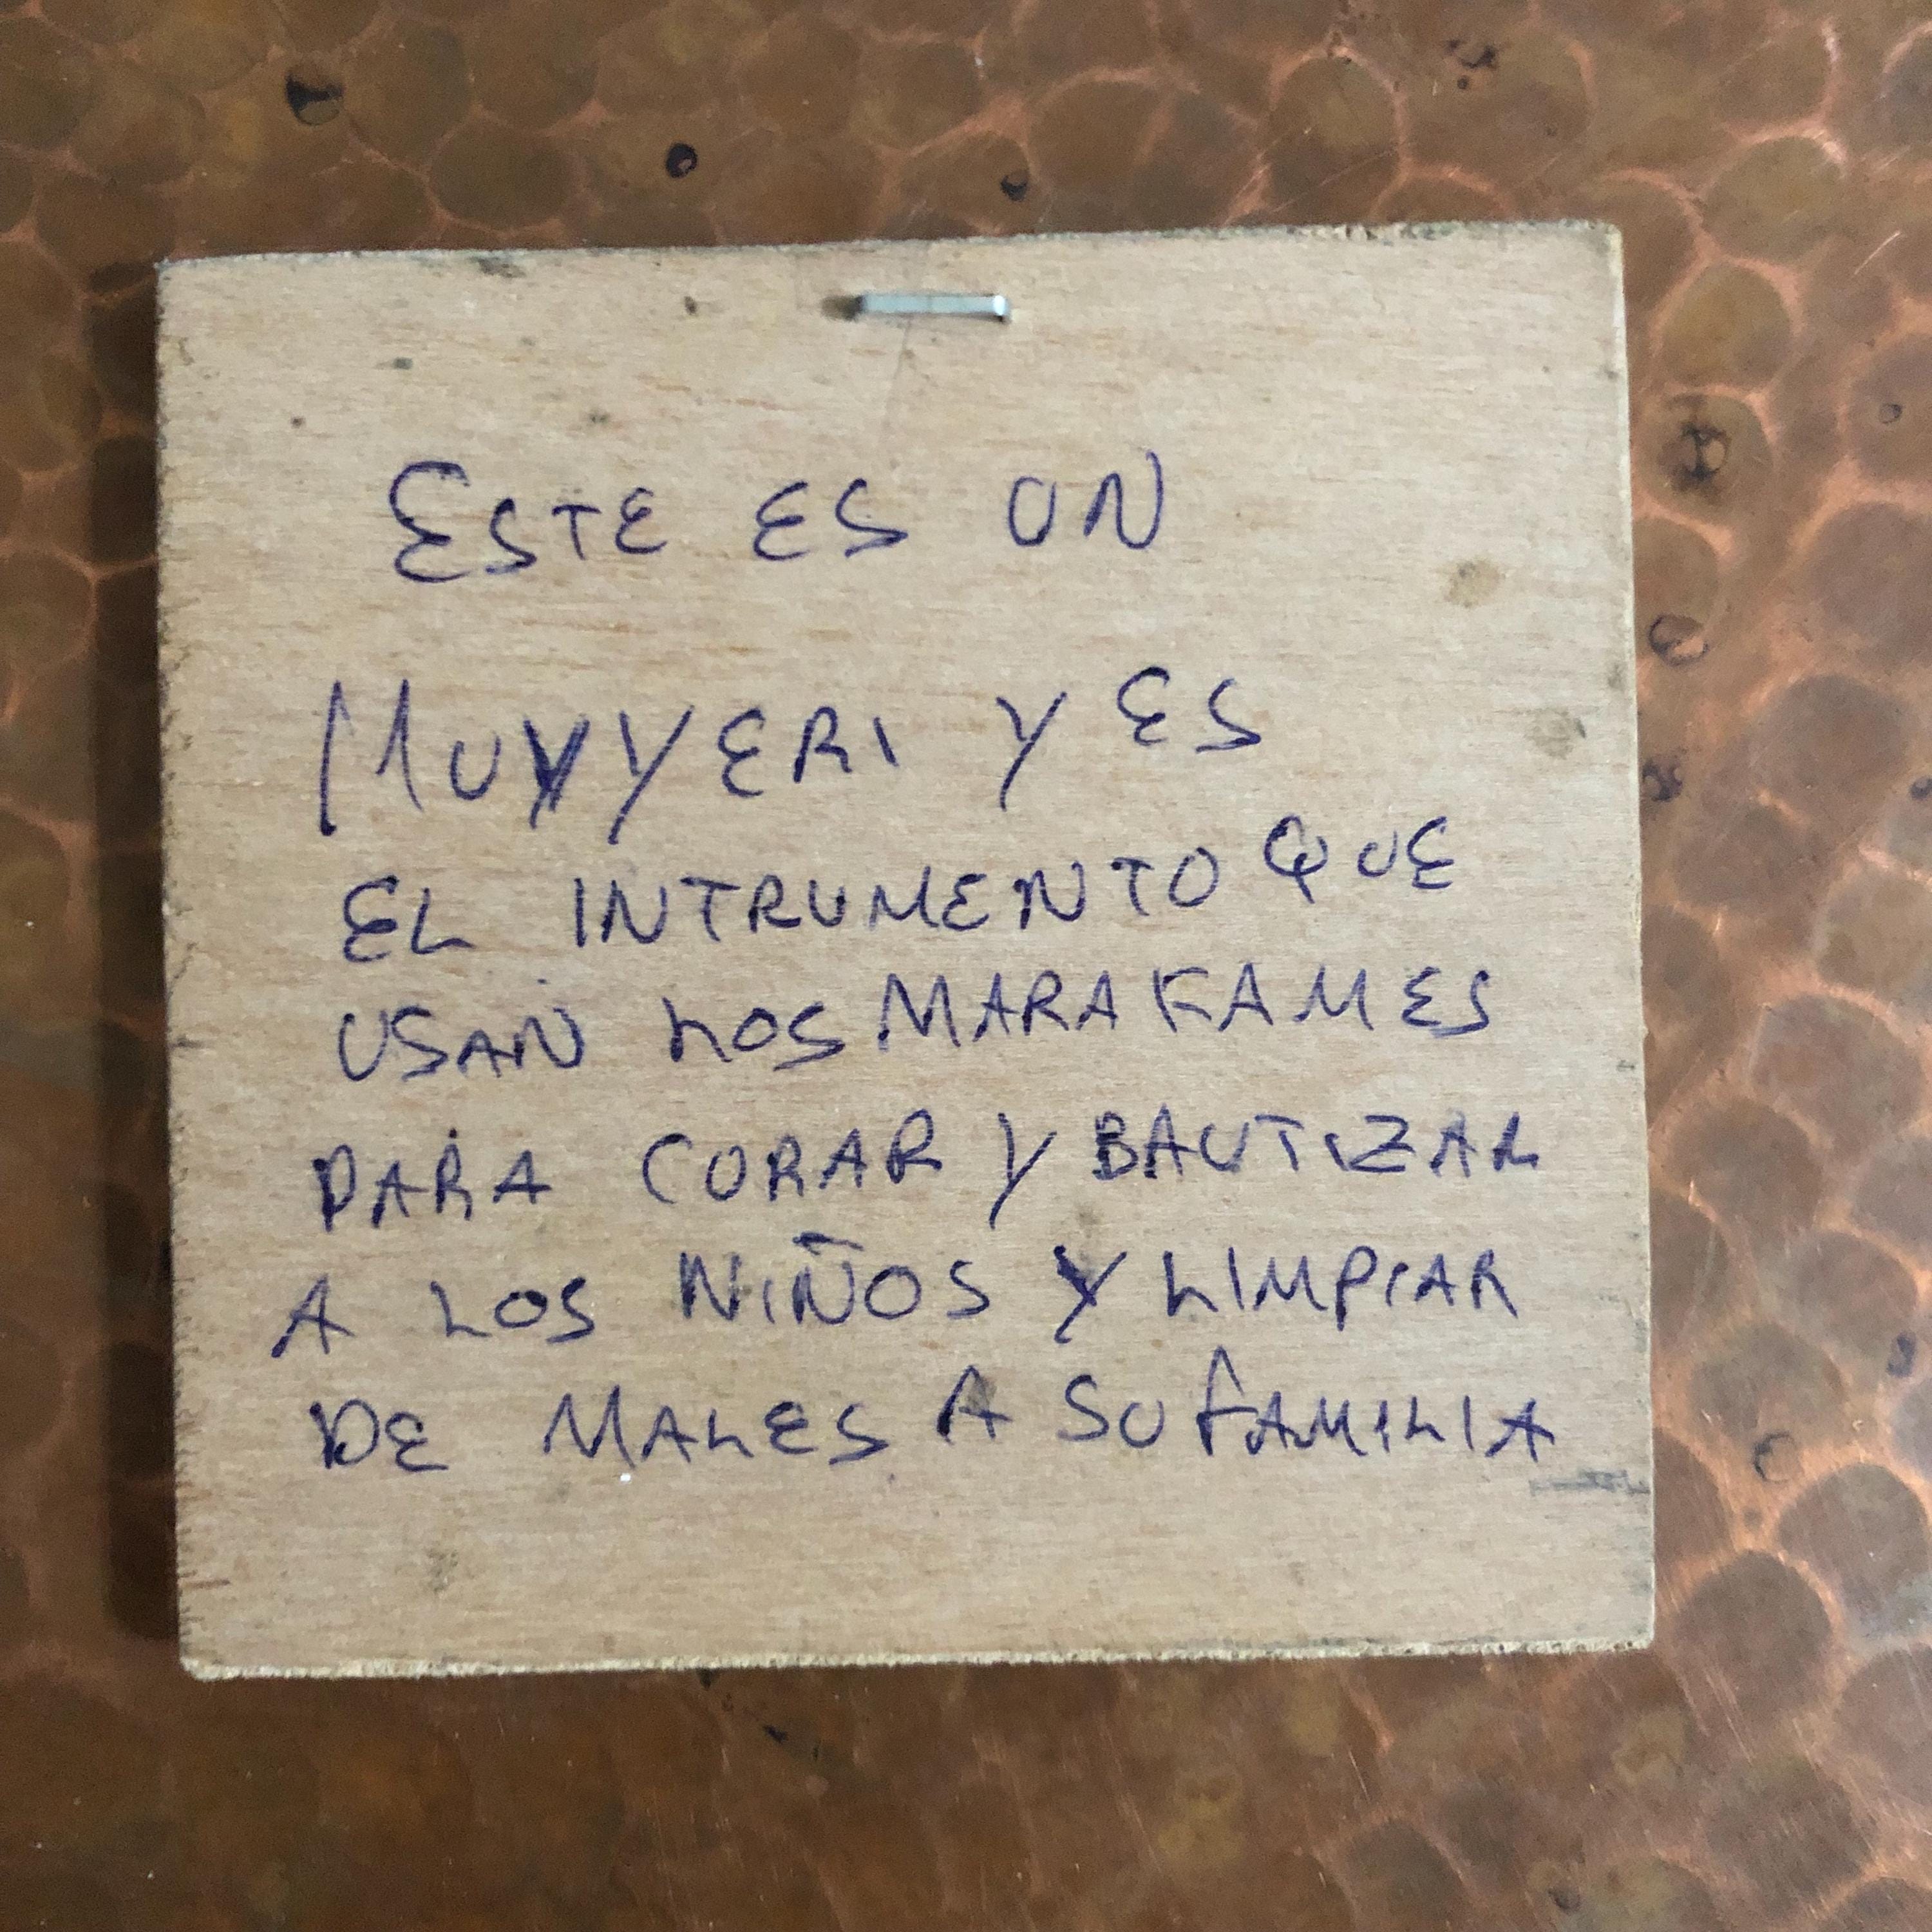 ESTE ES UN
MUVYERI Y ES
EL INTRUMENTO QUE
USAN LOS MARAKAMES
PARA CURAR Y BAUTIZAR
A LOS NIÑOS Y LIMPIAR
DE MALES A SU FAMILIA